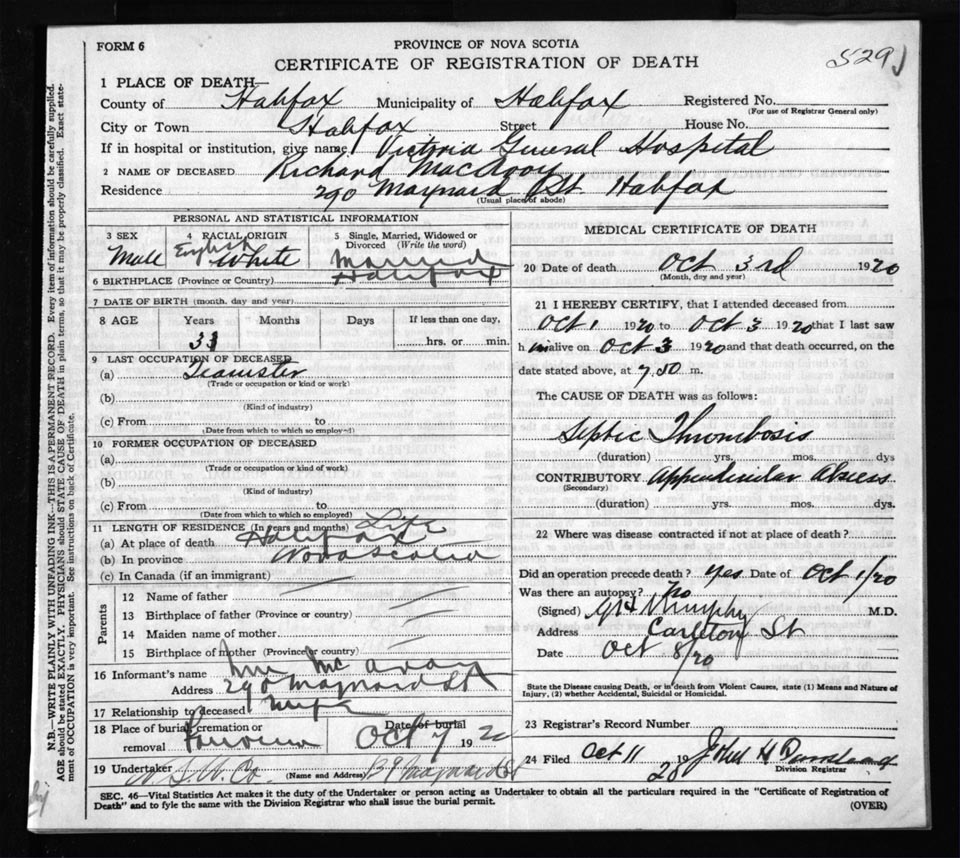 FORM 6
PROVINCE OF NOVA SCOTIA
CERTIFICATE OF REGISTRATION OF DEATH
5291
1 PLACE OF DEATH—
County of Halifax Municipality of Halifax Registered No.
(For use of Registrar General only)
City or Town Halifax Street House No.
If in hospital or institution, give name Victoria General Hospital
2 NAME OF DECEASED Richard
Residence 290 Maynard St. Halifax
(Usual place of abode)
PERSONAL AND STATISTICAL INFORMATION
3 SEX Male
4 RACIAL ORIGIN English White
5 Single, Married, Widowed or Divorced (Write the word) Married
6 BIRTHPLACE (Province or Country) Halifax
7 DATE OF BIRTH (month, day and year)
8 AGE Years Months Days If less than one day,
33 hrs. or min.
9 LAST OCCUPATION OF DECEASED
(a) Teamster
(Trade or occupation or kind or work)
(b)
(Kind of industry)
(c) From to
(Date from which to which so employed)
10 FORMER OCCUPATION OF DECEASED
(a)
(Trade or occupation or kind of work)
(b)
(Kind of industry)
(c) From to
(Date from which to which so employed)
11 LENGTH OF RESIDENCE (In years and months) Life
(a) At place of death Halifax
(b) In province Nova Scotia
(c) In Canada (if an immigrant)
Parents
12 Name of father
13 Birthplace of father (Province or country)
14 Maiden name of mother
15 Birthplace of mother (Province or country)
16 Informant's name Mrs
Address 290 Maynard St
17 Relationship to deceased Wife
18 Place of burial, cremation or removal Date of burial
Oct 7 1920
19 Undertaker Co. (Name and Address) 139 Maynard St
MEDICAL CERTIFICATE OF DEATH
20 Date of death Oct 3rd 1920
(Month, day and year)
21 I HEREBY CERTIFY, that I attended deceased from
Oct 1 1920 to Oct 3 1920 that I last saw
h im alive on Oct 3 1920 and that death occurred, on the
date stated above, at 7.50 m.
The CAUSE OF DEATH was as follows:
Septic Thrombosis
(duration) yrs. mos. dys
CONTRIBUTORY Appendicular Abscess
(Secondary)
(duration) yrs. mos. dys.
22 Where was disease contracted if not at place of death?
Did an operation precede death? Yes Date of Oct 1/20
Was there an autopsy? No
(Signed) Murphy M.D.
Address Carleton St
Date Oct 8/20
State the Disease causing Death, or in death from Violent Causes, state (1) Means and Nature of
Injury, (2) whether Accidental, Suicidal or Homicidal.
23 Registrar's Record Number
24 Filed Oct 11 1920 John H
Division Registrar
SEC. 46—Vital Statistics Act makes it the duty of the Undertaker or person acting as Undertaker to obtain all the particulars required in the "Certificate of Registration of
Death" and to fyle the same with the Division Registrar who shall issue the burial permit.
(OVER)
N.B.—WRITE PLAINLY WITH UNFADING INK—THIS IS A PERMANENT RECORD. Every item of information should be carefully supplied.
AGE should be stated EXACTLY. PHYSICIANS should STATE CAUSE OF DEATH in plain terms, so that it may be properly classified. Exact statement of OCCUPATION is very important. See instructions on back of Certificate.